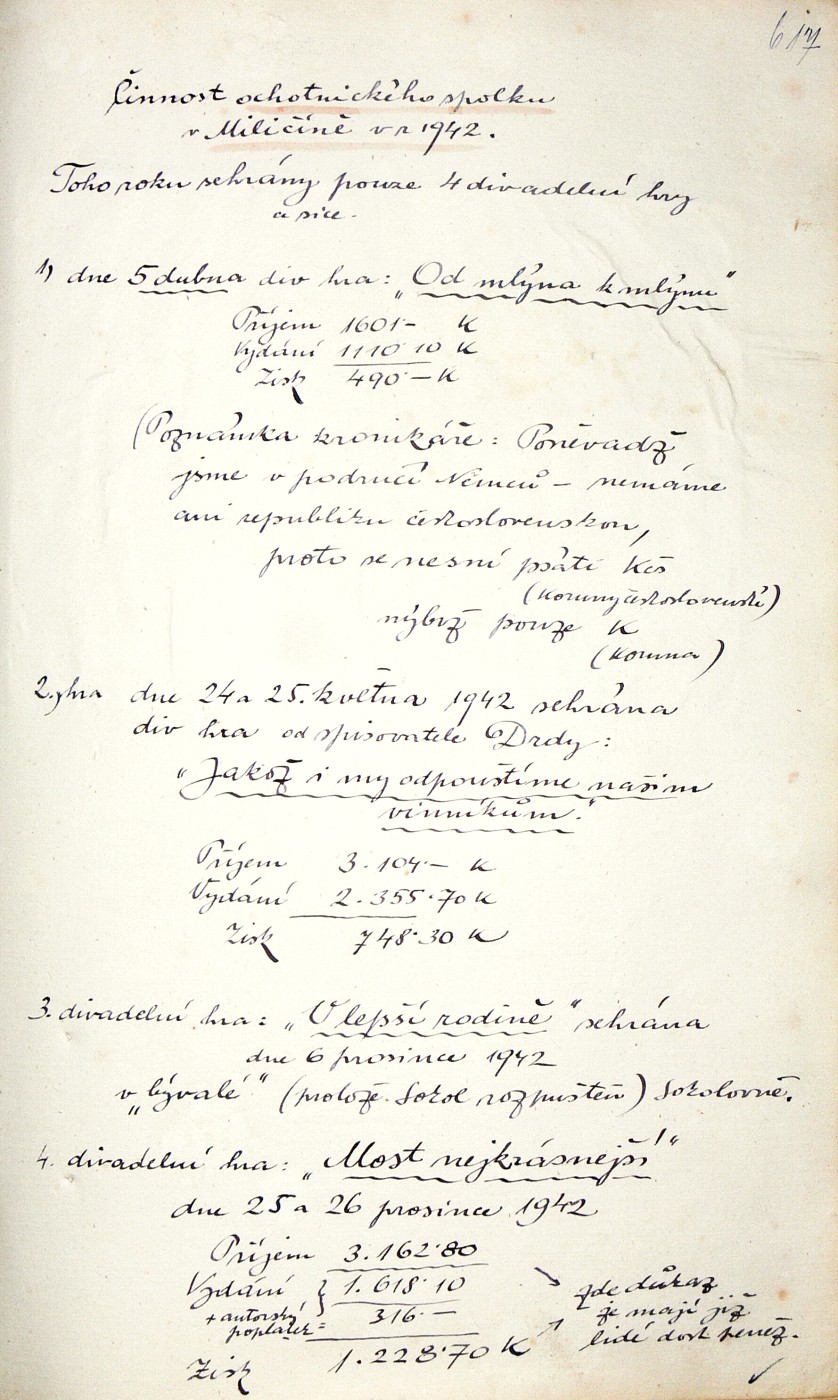 617
Činnost ochotnického spolku
v Miličíně v r 1942.
Toho roku sehrány pouze 4 divadelní hry
a sice.
1) dne 5 dubna div hra: „Od mlýna k mlýnu"
Příjem 1601·— K
Vydání 1110·10 K
Zisk 490·— K
(Poznámka kronikáře: Poněvadž
jsme v područí Němců – nemáme
ani republiku československou,
proto se nesmí psáti Kčs
(koruny československé)
nýbrž pouze K
(koruna)
2. hra dne 24 a 25. května 1942 sehrána
div hra od spisovatele Drdy:
„Jakož i my odpouštíme našim
vinníkům."
Příjem 3.104·— K
Vydání 2.355·70 K
Zisk 748·30 K
3. divadelní hra: „V lepší rodině" sehrána
dne 6 prosince 1942
v „bývalé" (protože Sokol rozpuštěn) Sokolovně.
4. divadelní hra: „Most nejkrásnejší"
dne 25 a 26 prosince 1942
Příjem 3.162·80
Vydání } 1.618·10
+ autorský poplatek = 316·—
Zisk 1.228·70 K
zde důkaz
že mají již
lidé dost peněz.